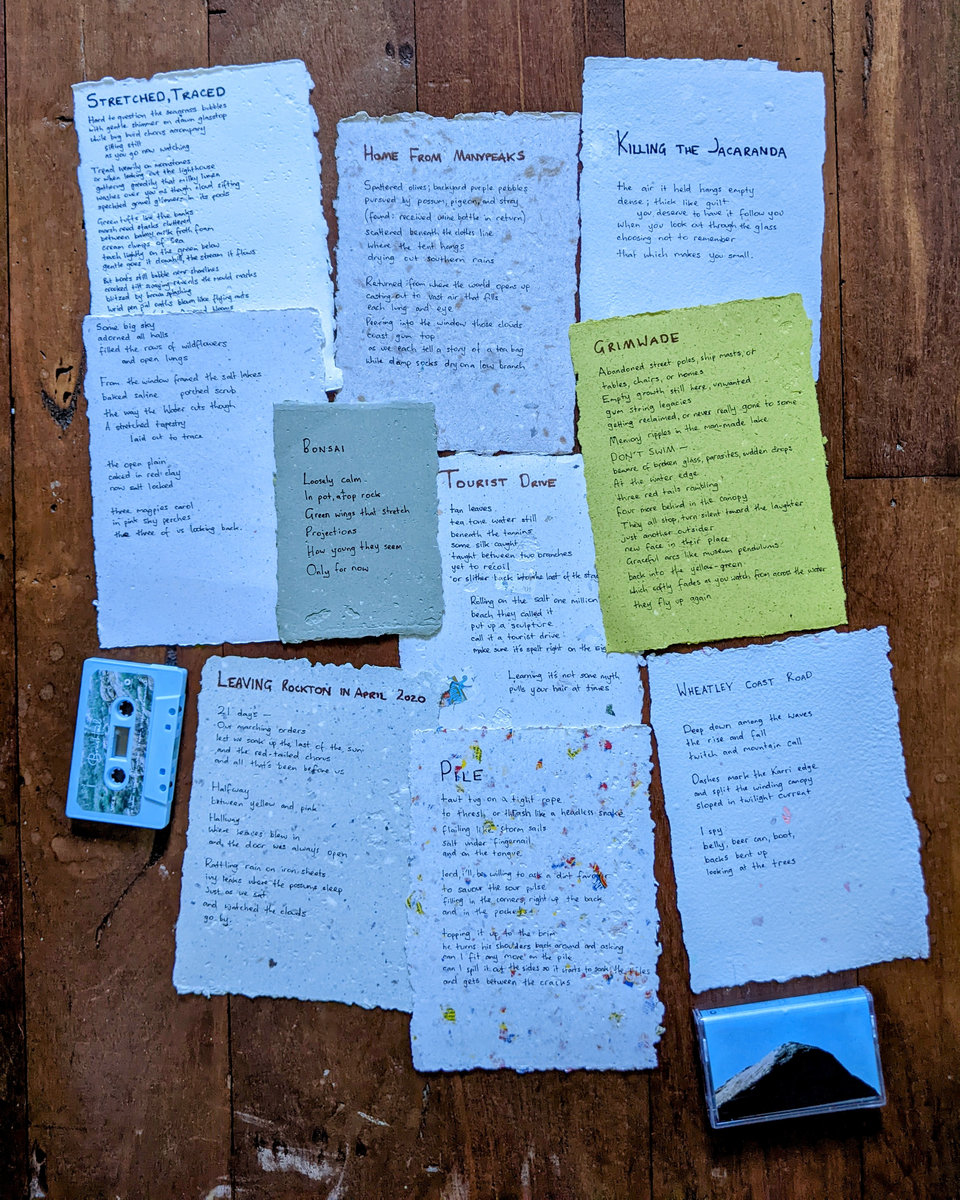 STRETCHED, TRACED
Hard to question the seagrass bubbles
with gentle shimmer on dawn glasstop
while big bird chorus accompany
sitting still
as you go now watching
Tread wearily on moonstones
or when looking out the lighthouse
gathering greedily that milky lumen
washes over you as though cloud sifting
speckled gravel glimmers in its pools
Green tufts line the banks
marsh reed stacks cluttered
between balmy milk froth foam
cream clumps of sea
touch lightly on the green below
gentle goes it downhill the stream it flows
But boats still bobble near shorelines
crooked tilt sagging reveals the mould marks
blitzed by bronze splashing
Some big sky
adorned all halls
filled the rows of wildflowers
and open lungs
From the window framed the salt lakes
baked saline parched scrub
the way the water cuts though
A stretched tapestry
laid out to trace
the open plain
caked in red clay
now salt locked
three magpies carol
in pink sky perches
the three of us looking back.
HOME FROM MANYPEAKS
Spattered olives; backyard purple pebbles
pursued by possum, pigeon, and stray
(found: received wine bottle in return)
scattered beneath the clothes line
where the tent hangs
drying out southern rains
Returned from where the world opens up
casting out to vast air that fills
each lung and eye
Peering into the window those clouds
coast gum top
as we each tell a story of a tea bag
while damp socks dry on a low branch
KILLING THE JACARANDA
The air it held hangs empty
dense; thick like guilt
you deserve to have it follow you
When you look out through the glass
choosing not to remember
that which makes you small.
GRIMWADE
Abandoned street poles, ship masts, or
tables, chairs, or homes
Empty growth still here, unwanted
gum string legacies
getting reclaimed, or never really gone to some
Memory ripples in the man-made lake
DON'T SWIM —
beware of broken glass, parasites, sudden drops
At the water edge
three red tails rambling
Four more behind in the canopy
They all stop, turn silent toward the laughter
just another outsider
new face in their place
Graceful arcs like museum pendulums
back into the yellow-green
which softly fades as you watch from across the water
they fly up again
BONSAI
Loosely calm.
In pot, atop rock
Green wings that stretch
Projections
How young they seem
Only for now
TOURIST DRIVE
tan leaves
tea tone water still
beneath the tannins
some silk caught
taught between two branches
yet to recoil
or slither back into the last of the
Rolling on the salt one million
beach they called it
put up a sculpture
call it a tourist drive
make sure it's spelt right on the
Learning it's not some myth
pulls your hair at times
LEAVING ROCKTON IN APRIL 2020
21 days —
Our marching orders
lest we soak up the last of the sun
and the red-tailed chorus
and all that's been before us
Halfway
between yellow and pink
Hallway
where leaves blew in
and the door was always open
Rattling rain on iron sheets
ivy leans where the possums sleep
Just as we sat
and watched the clouds
go by.
PILE
taut tug on a tight rope
to thresh or thrash like a headless snake
flailing like storm sails
salt under fingernail
and on the tongue
lord, i'll be willing to ask a dirt favour
to savour the sour pulse
filling in the corners, right up the back
and in the pockets
topping it up to the brim
he turns his shoulders back around and asking
can I fit any more on the pile
can I spill it out the sides so it starts to soak the tiles
and gets between the cracks
WHEATLEY COAST ROAD
Deep down among the waves
the rise and fall
twitch and mountain call
Dashes mark the Karri edge
and split the winding canopy
sloped in twilight current
I spy
belly, beer can, boot,
backs bent up
looking at the trees